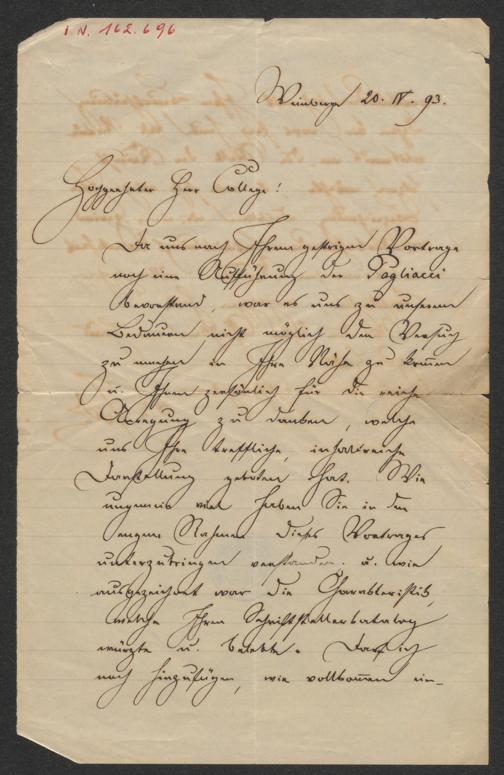 I. N. 162.696
Weinberge 20. IV. 93.
Hochgeehrter Herr College!
Da uns nach Ihrem gestrigen Vortrage
noch eine Aufführung der Pagliacci
bevorstand, war es uns zu unserem
Bedauern nicht möglich den Versuch
zu machen in Ihre Nähe zu kommen
u. Ihnen persönlich für die reiche
Anregung zu danken, welche
uns Ihre treffliche, inhaltreiche
Darstellung geboten hat. Wie
ungemein viel haben Sie in den
engen Rahmen dieses Vortrages
unterzubringen verstanden. u. wie
ausgezeichnet war die Charakteristik,
welche Ihren Schriftstellerkatalog
würzte u. belebte. Darf ich
noch hinzufügen, wie vollkommen ein-